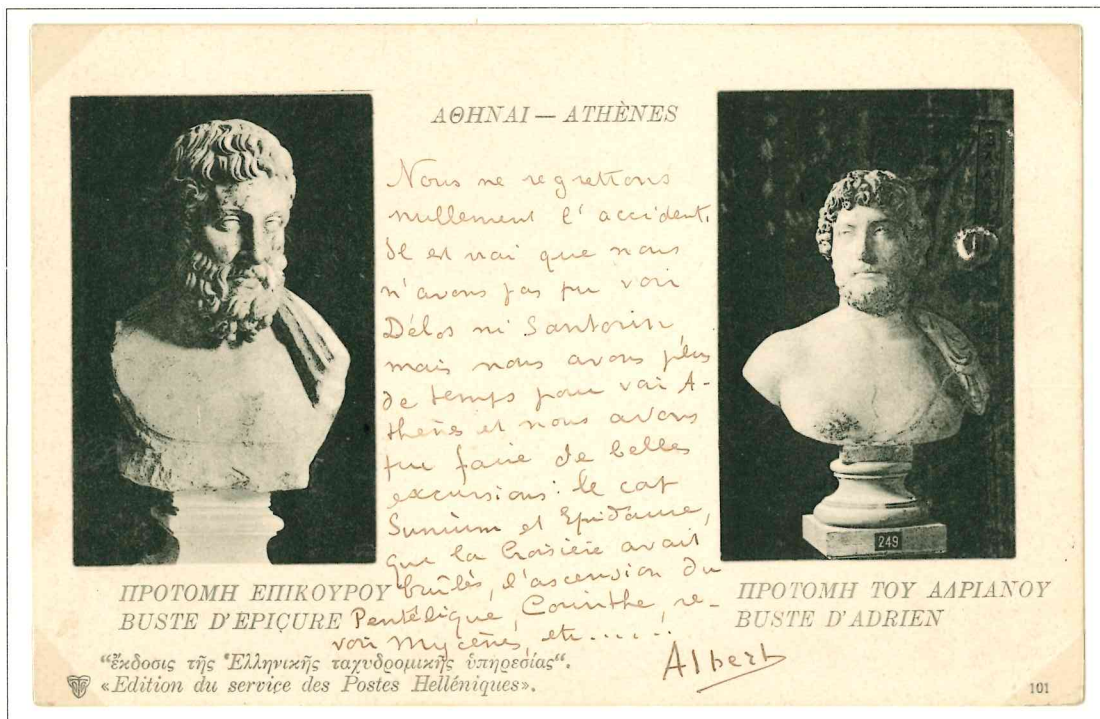 ΑΘΗΝΑΙ — ATHÈNES
Nous ne regrettons
nullement l'accident.
Il est vrai que nous
n'avons pas pu voir
Délos ni Santorin
mais nous avons plus
de temps pour voir A-
thènes et nous avons
pu faire de belles
excursions: le cap
Sunium et Epidaure,
que la Croisière avait
brûlés, l'ascension du
Pentélique, Corinthe, re-
voir Mycènes, etc......
Albert
ΠΡΟΤΟΜΗ ΕΠΙΚΟΥΡΟΥ
BUSTE D'ÉPICURE
249
ΠΡΟΤΟΜΗ ΤΟΥ ΑΔΡΙΑΝΟΥ
BUSTE D'ADRIEN
“ἔκδοσις τῆς Ἑλληνικῆς ταχυδρομικῆς ὑπηρεσίας“.
«Edition du service des Postes Helléniques».
101